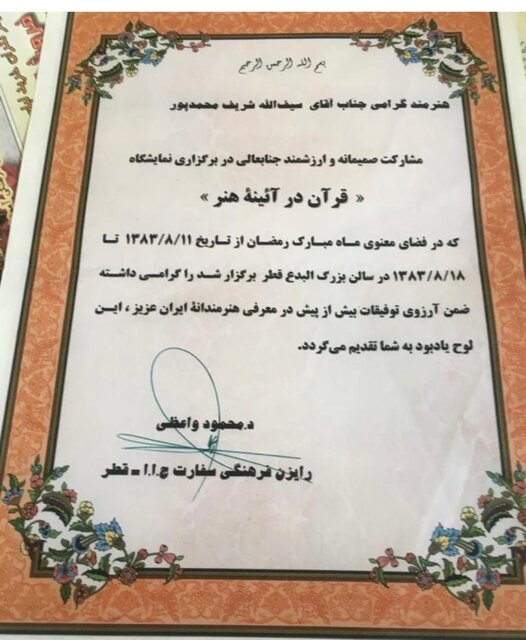 بسم الله الرحمن الرحیم
هنرمند گرامی جناب آقای سیف‌الله شریف محمدپور
مشارکت صمیمانه و ارزشمند جنابعالی در برگزاری نمایشگاه
« قرآن در آئینهٔ هنر »
که در فضای معنوی ماه مبارک رمضان از تاریخ ۱۳۸۳/۸/۱۱ تا
۱۳۸۳/۸/۱۸ در سالن بزرگ البدع قطر برگزار شد را گرامی داشته
ضمن آرزوی توفیقات بیش از پیش در معرفی هنرمندانهٔ ایران عزیز ، این
لوح یادبود به شما تقدیم می‌گردد.
د.محمود واعظی
رایزن فرهنگی سفارت ج.ا.ا - قطر